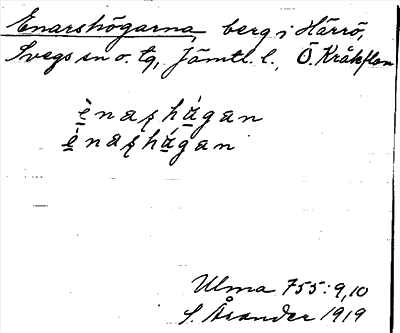 Enarshögarna, berg i Härrö,
Svegs sn o. tg, Jämtl. l., Ö. Kråkflon
ènashágan
énashágan
Ulma 755:9,10
S. Årander 1919